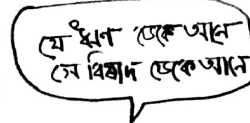 যে ঋণ ডেকে আনে
সে বিষাদ ডেকে আনে